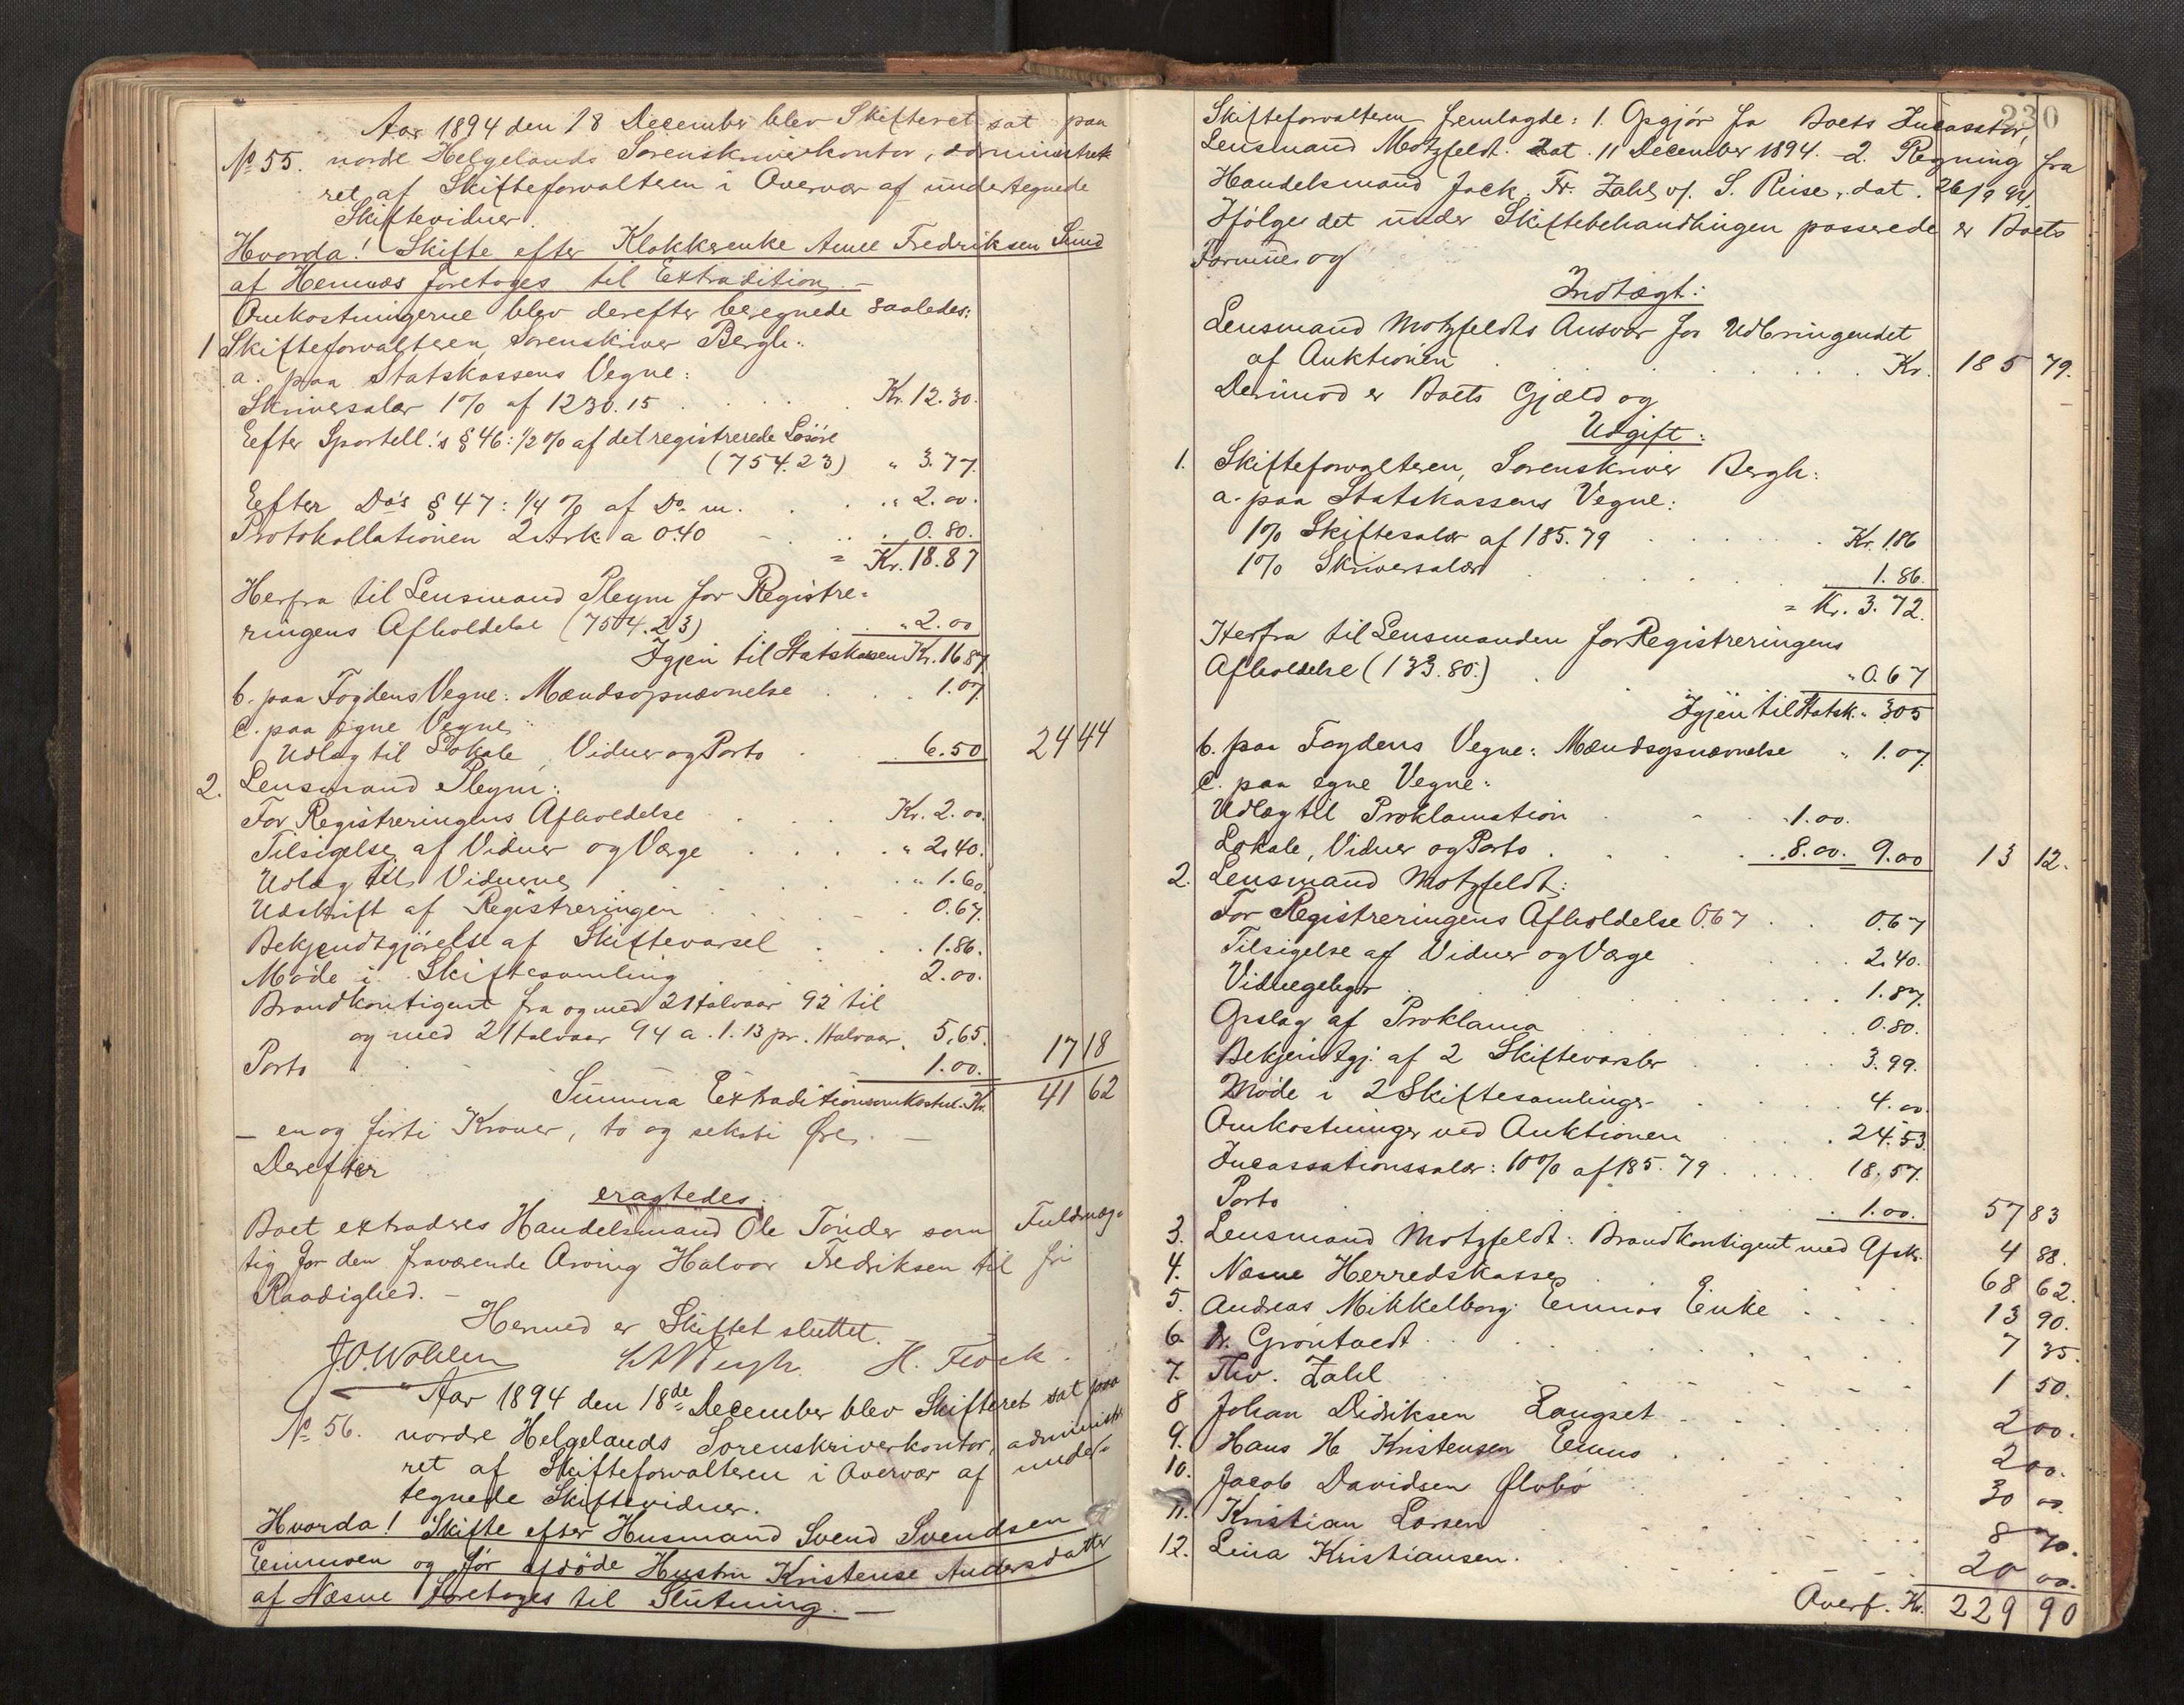 Aar 1894 den 18 December blev Skifteret sat paa
No 55. nordr. Helgelands Sorenskriverkontor, administre-
ret af Skifteforvalteren i Overvær af undertegnede
Skiftevidner.
Hvorda! Skifte efter Klokkerenke Anne Fredriksen Sund
af Hemnæs foretoges til Extradition. –
Omkostningerne blev derefter beregnede saaledes:
1 Skifteforvalteren, Sorenskriver Bergh:
a. paa Statskassens Vegne:
Skriversalær 1% af 1230.15 . . . . Kr. 12.30.
Efter Sportell.'s § 46: ½% af det registrerede Løsøre
(754.23) " 3.77.
Efter Do's § 47: ¼% af Do m. . . . " 2.00.
Protokollationen 2 Ark a 0.40 - . . . 0.80.
= Kr. 18.87
Herfra til Lensmand Pleym for Registre-
ringens Afholdelse (754.23) . " 2.00
Igjen til Statskassen Kr. 16.87.
b. paa Fogdens Vegne: Mændsopnævnelse . . . 1.07.
c. paa egne Vegne:
Udlæg til Lokale, Vidner og Porto . . 6.50 24 44
2. Lensmand Pleym:
For Registreringens Afholdelse . . . Kr. 2.00.
Tilsigelse af Vidner og Værge . . . . " 2.40.
Udlæg til Vidnerne . . . . " 1.60.
Udskrift af Registreringen . . . . 0.67.
Bekjendtgjørelse af Skiftevarsel . . . 1.86.
Møde i Skiftesamling . . . 2.00.
Brandkontigent fra og med 2 Halvaar 92 til
og med 2 Halvaar 94 a. 1.13 pr. Halvaar. 5.65.
Porto . . . . 1.00. 17 18
Summa Extraditionsomkostn. Kr. 41 62
– en og firti Kroner, to og seksti Øre. –
Derefter
eragtedes:
Boet extraderes Handelsmand Ole Tonder som Fuldmæg-
tig for den fraværende Arving Halvor Fredriksen til fri
Raadighed. –
Hermed er Skiftet sluttet.
J.O. Wohlen Bergh. H. Flock.
Aar 1894 den 18de December blev Skifteret sat paa
No 56. nordre Helgelands Sorenskriverkontor, administre
ret af Skifteforvalteren i Overvær af under-
tegnede Skiftevidner.
Hvorda! Skifte efter Husmand Svend Svendsen
Einmoen og før afdøde Hustru Kristense Andersdatter
af Næsne foretoges til Slutning. –
230
Skifteforvalteren fremlagde: 1. Opgjør fra Boets Incassator,
Lensmand Motzfeldt. Dat. 11 December 1894. – 2. Regning fra
Handelsmand Jack. Fr. Zahl v/. S. Riise, dat. 26/9 94.
Ifølge det under Skiftebehandlingen passerede er Boets
Formue og
Indtægt:
Lensmand Motzfeldts Ansvar for Udbringendet
af Auktionen . . . . . . . Kr. 185 79.
Derimod er Boets Gjæld og
Udgift:
1. Skifteforvalteren, Sorenskriver Bergh:
a. paa Statskassens Vegne:
1% Skiftesalær af 185.79 . . . . . . Kr. 1.86
1% Skriversalær . . . . . 1.86.
= Kr. 3.72.
Herfra til Lensmanden for Registreringens
Afholdelse (133.80.) . . " 0.67
Igjen til Statsk. " 3.05
b. paa Fogdens Vegne: Mændsopnævnelse " 1.07.
c. paa egne Vegne:
Udlæg til Proklamation . - . 1.00.
Lokale, Vidner og Porto . . . . 8.00. 9.00 13 12.
2. Lensmand Motzfeldt:
For Registreringens Afholdelse 0.67 . . 0.67
Tilsigelse af Vidner og Værge . . . . 2.40.
Vidnegebyr . . . . . . . 1.87.
Opslag af Proklama . . . . 0.80.
Bekjendtgj. af 2 Skiftevarsler . . . . 3.99.
Møde i 2 Skiftesamlinger . . . . 4.00.
Omkostninger ved Auktionen . . . 24.53.
Incassationssalær: 10% af 185.79 . . . . 18.57.
Porto . 1.00. 57 83
3. Lensmand Motzfeldt: Brandkontigent med Afsk. 4 88.
4. Næsne Herredskasse . . . . 68 62.
5. Andreas Mikkelborg. Emnæs Enke . . . . 13 90.
6. Dr. Grøntvedt . . . . . . 7 35.
7. Thv. Zahl . . . . 1 50.
8 Johan Didriksen Langset . . . . 2 00.
9. Hans H Kristensen Emnes . . . . 2 00.
10. Jacob Davidsen Ølvbø . . . . 30 00
11. Kristian Larsen . . . . 8 70.
12. Lina Kristiansen. . . . . 20 00.
Overf. Kr. 229 90